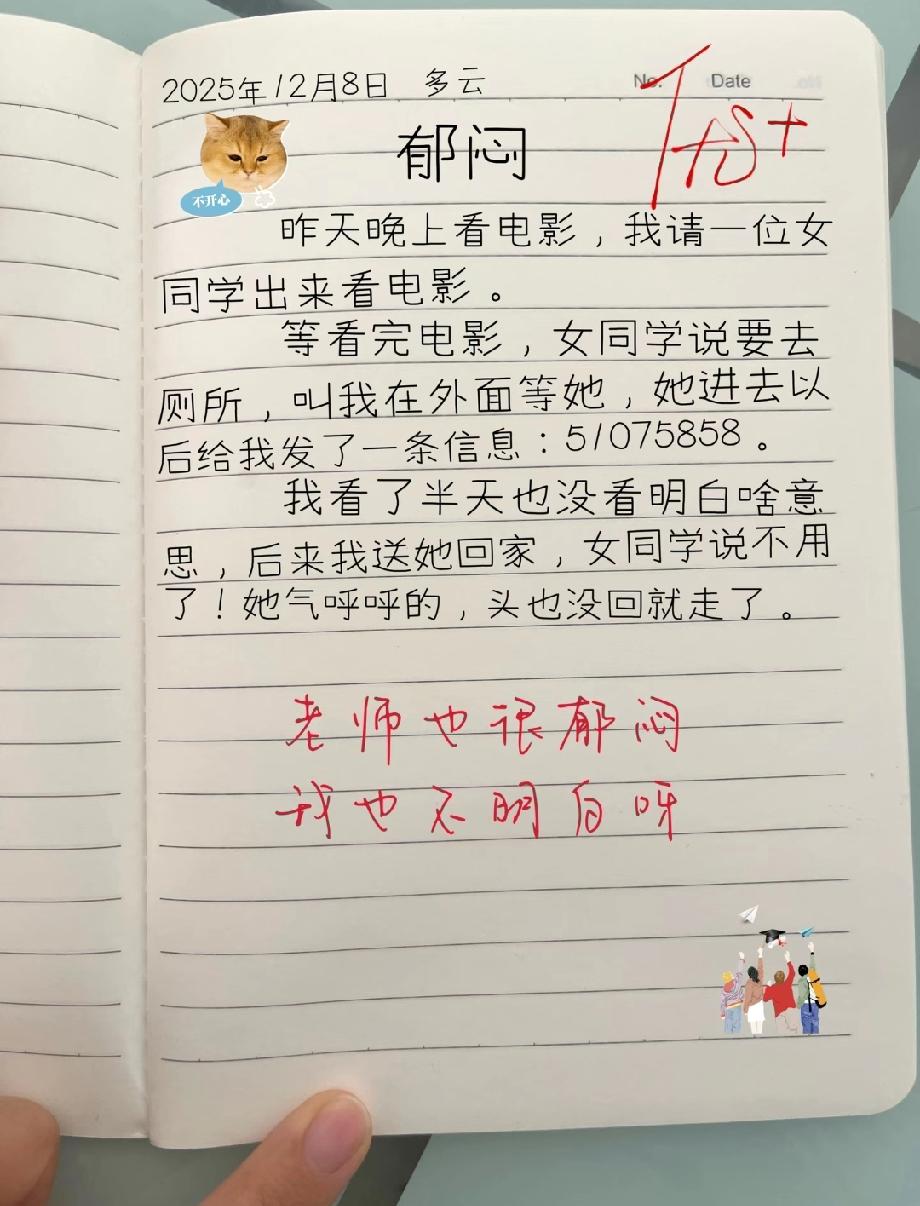 No. Date
2025年12月8日 多云
不开心
郁闷
昨天晚上看电影，我请一位女
同学出来看电影。
等看完电影，女同学说要去
厕所，叫我在外面等她，她进去以
后给我发了一条信息：51075858。
我看了半天也没看明白啥意
思，后来我送她回家，女同学说不用
了！她气呼呼的，头也没回就走了。
老师也很郁闷
我也不明白呀